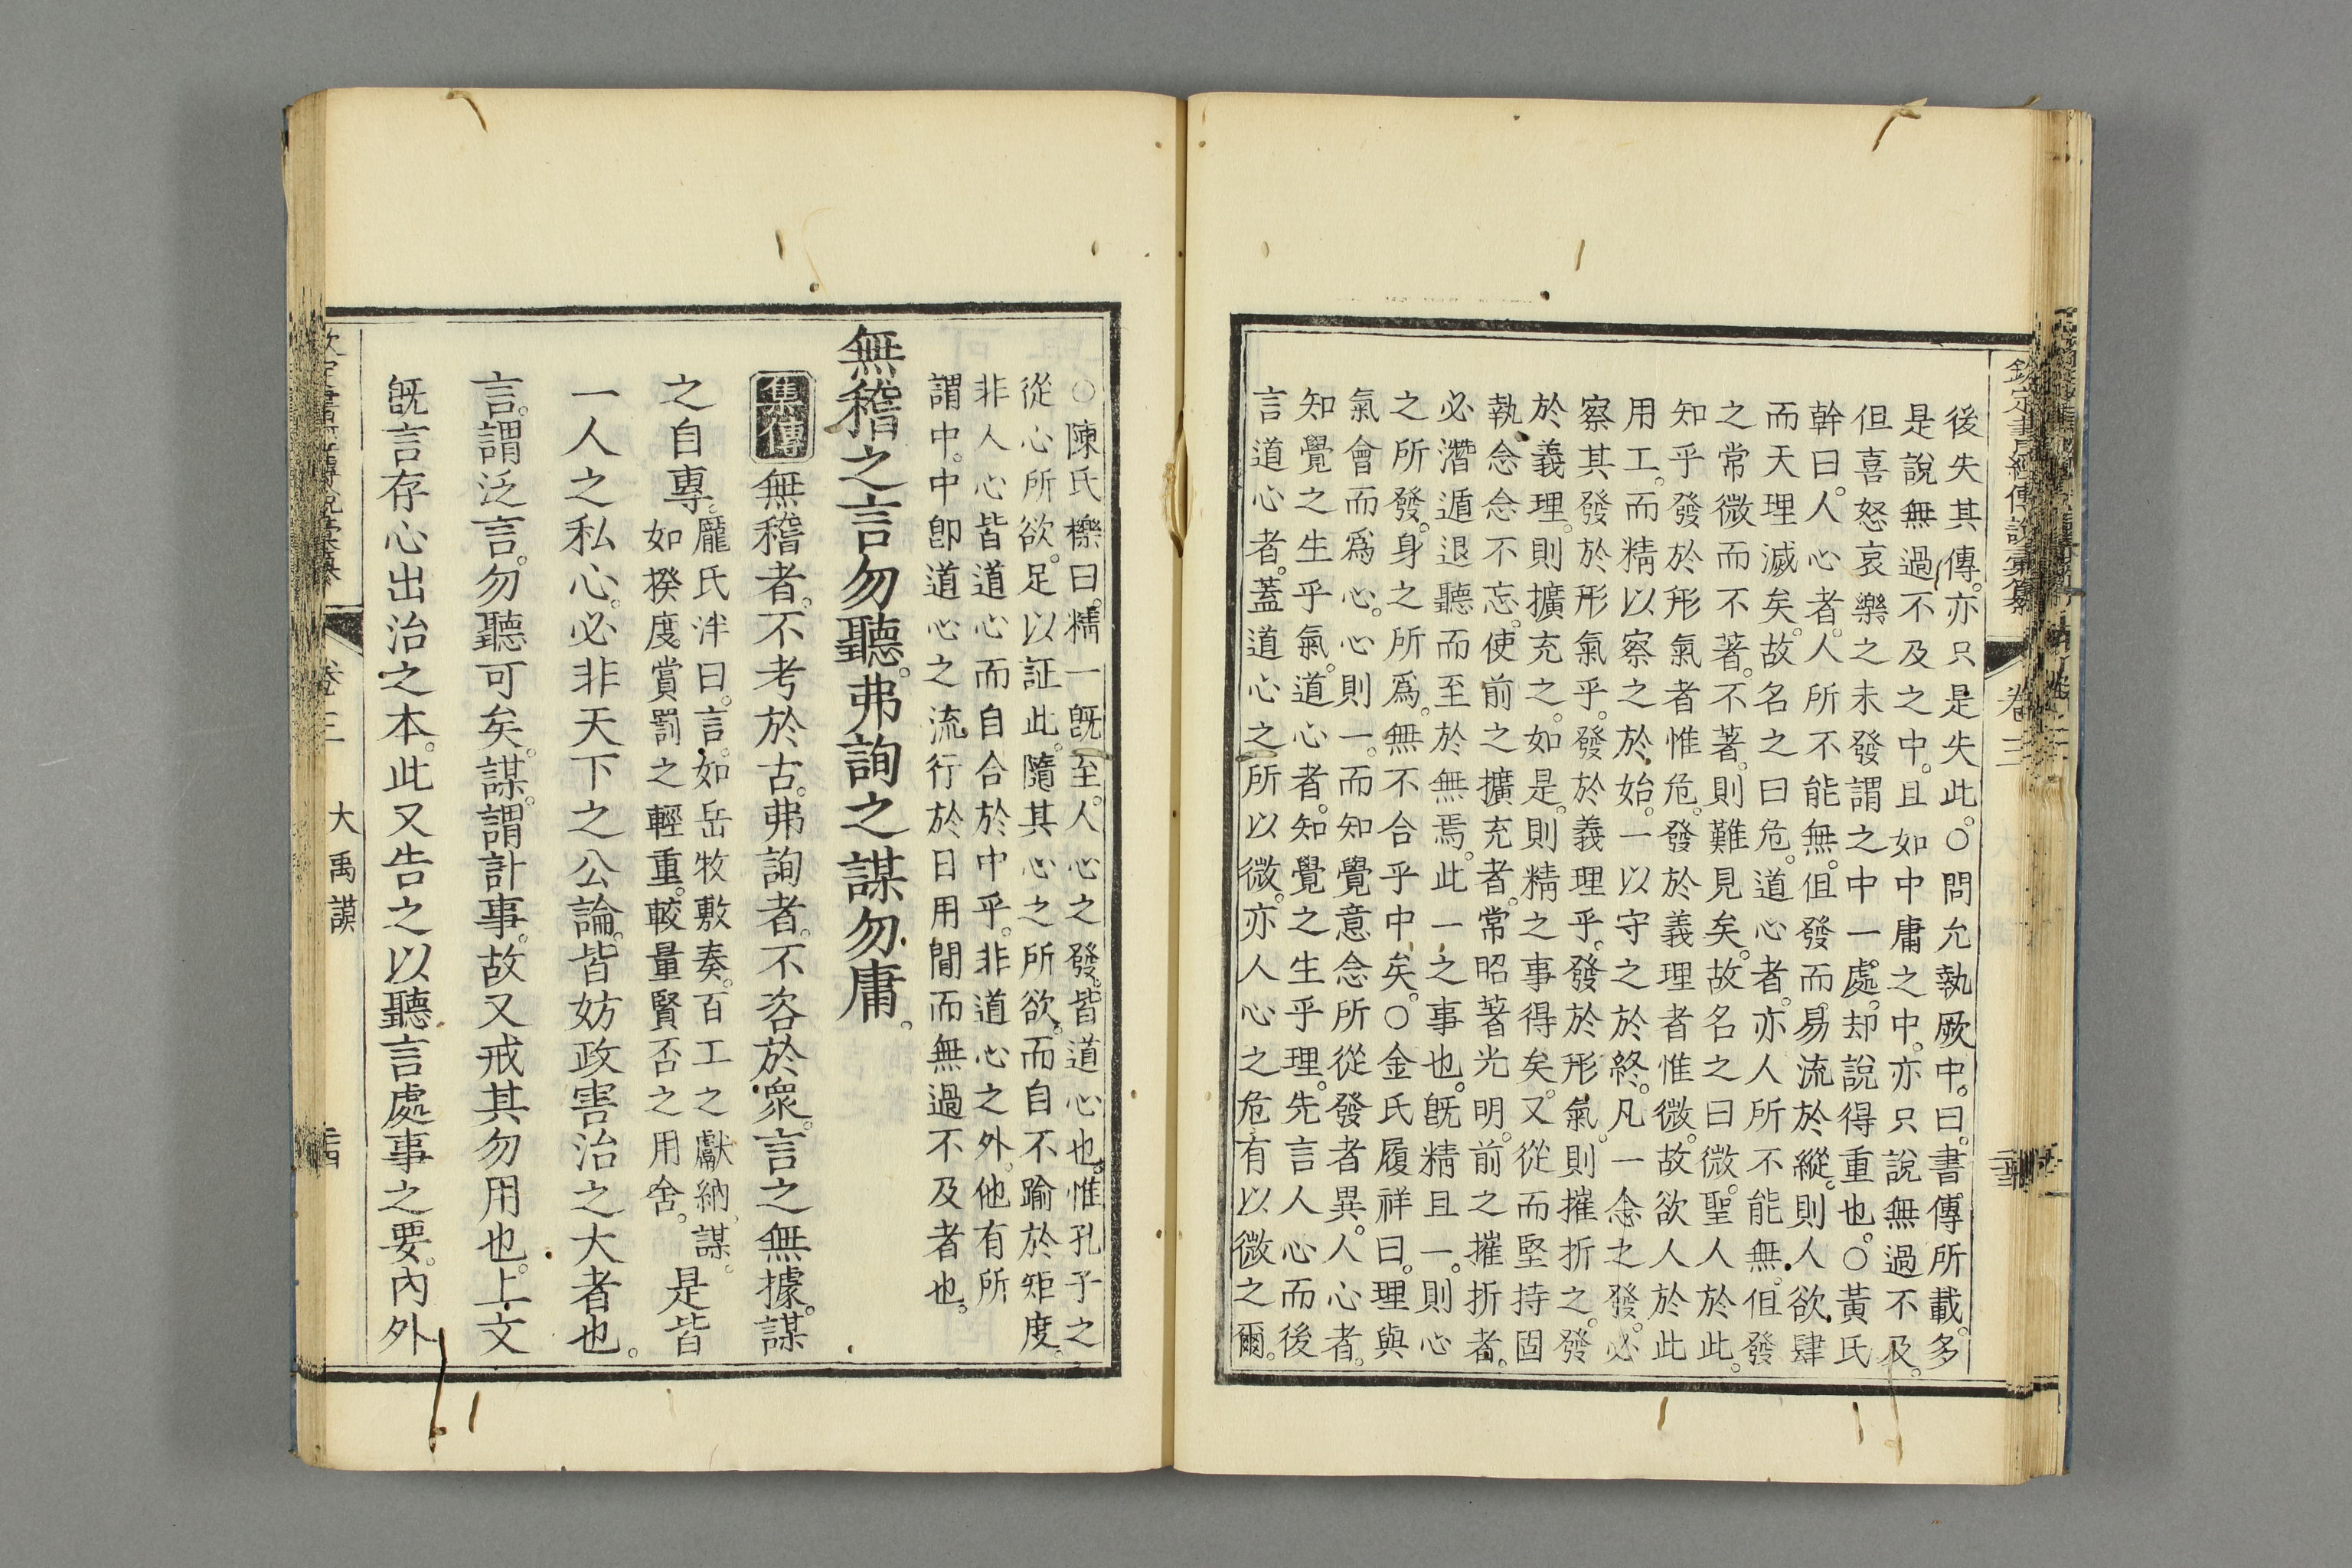 欽定書經傳說彙纂
卷三
後失其傳。亦只是失此。○問允執厥中。曰。書傳所載。多
是說無過不及之中。且如中庸之中。亦只說無過不及。
但喜怒哀樂之未發謂之中一處。却說得重也。○黃氏
幹曰。人心者。人所不能無。但發而易流於縱。則人欲肆
而天理滅矣。故名之曰危。道心者。亦人所不能無。但發
之常微而不著。不著。則難見矣。故名之曰微。聖人於此。
知乎發於形氣者惟危。發於義理者惟微。故欲人於此
用工。而精以察之於始。一以守之於終。凡一念之發。必
察其發於形氣乎。發於義理乎。發於形氣。則摧折之。發
於義理。則擴充之。如是。則精之事得矣。又從而堅持固
執。念念不忘。使前之擴充者。常昭著光明。前之摧折者。
必潛遁退聽而至於無焉。此一之事也。旣精且一。則心
之所發。身之所爲。無不合乎中矣。○金氏履祥曰。理與
氣會而爲心。心則一。而知覺意念所從發者異。人心者。
知覺之生乎氣。道心者。知覺之生乎理。先言人心而後
言道心者。蓋道心之所以微。亦人心之危有以微之爾。
○陳氏櫟曰。精一旣至。人心之發。皆道心也。惟孔子之
從心所欲。足以証此。隨其心之所欲。而自不踰於矩度。
非人心皆道心而自合於中乎。非道心之外。他有所
謂中。中卽道心之流行於日用閒而無過不及者也。
無稽之言勿聽。弗詢之謀勿庸。
集傳 無稽者。不考於古。弗詢者。不咨於衆。言之無據。謀
之自專。龐氏泮曰。言。如岳牧敷奏。百工之獻納。謀。如揆度賞罰之輕重。較量賢否之用舍。是皆
一人之私心。必非天下之公論。皆妨政害治之大者也。
言。謂泛言。勿聽可矣。謀。謂計事。故又戒其勿用也。上文
旣言存心出治之本。此又告之以聽言處事之要。內外
卷三
大禹謨